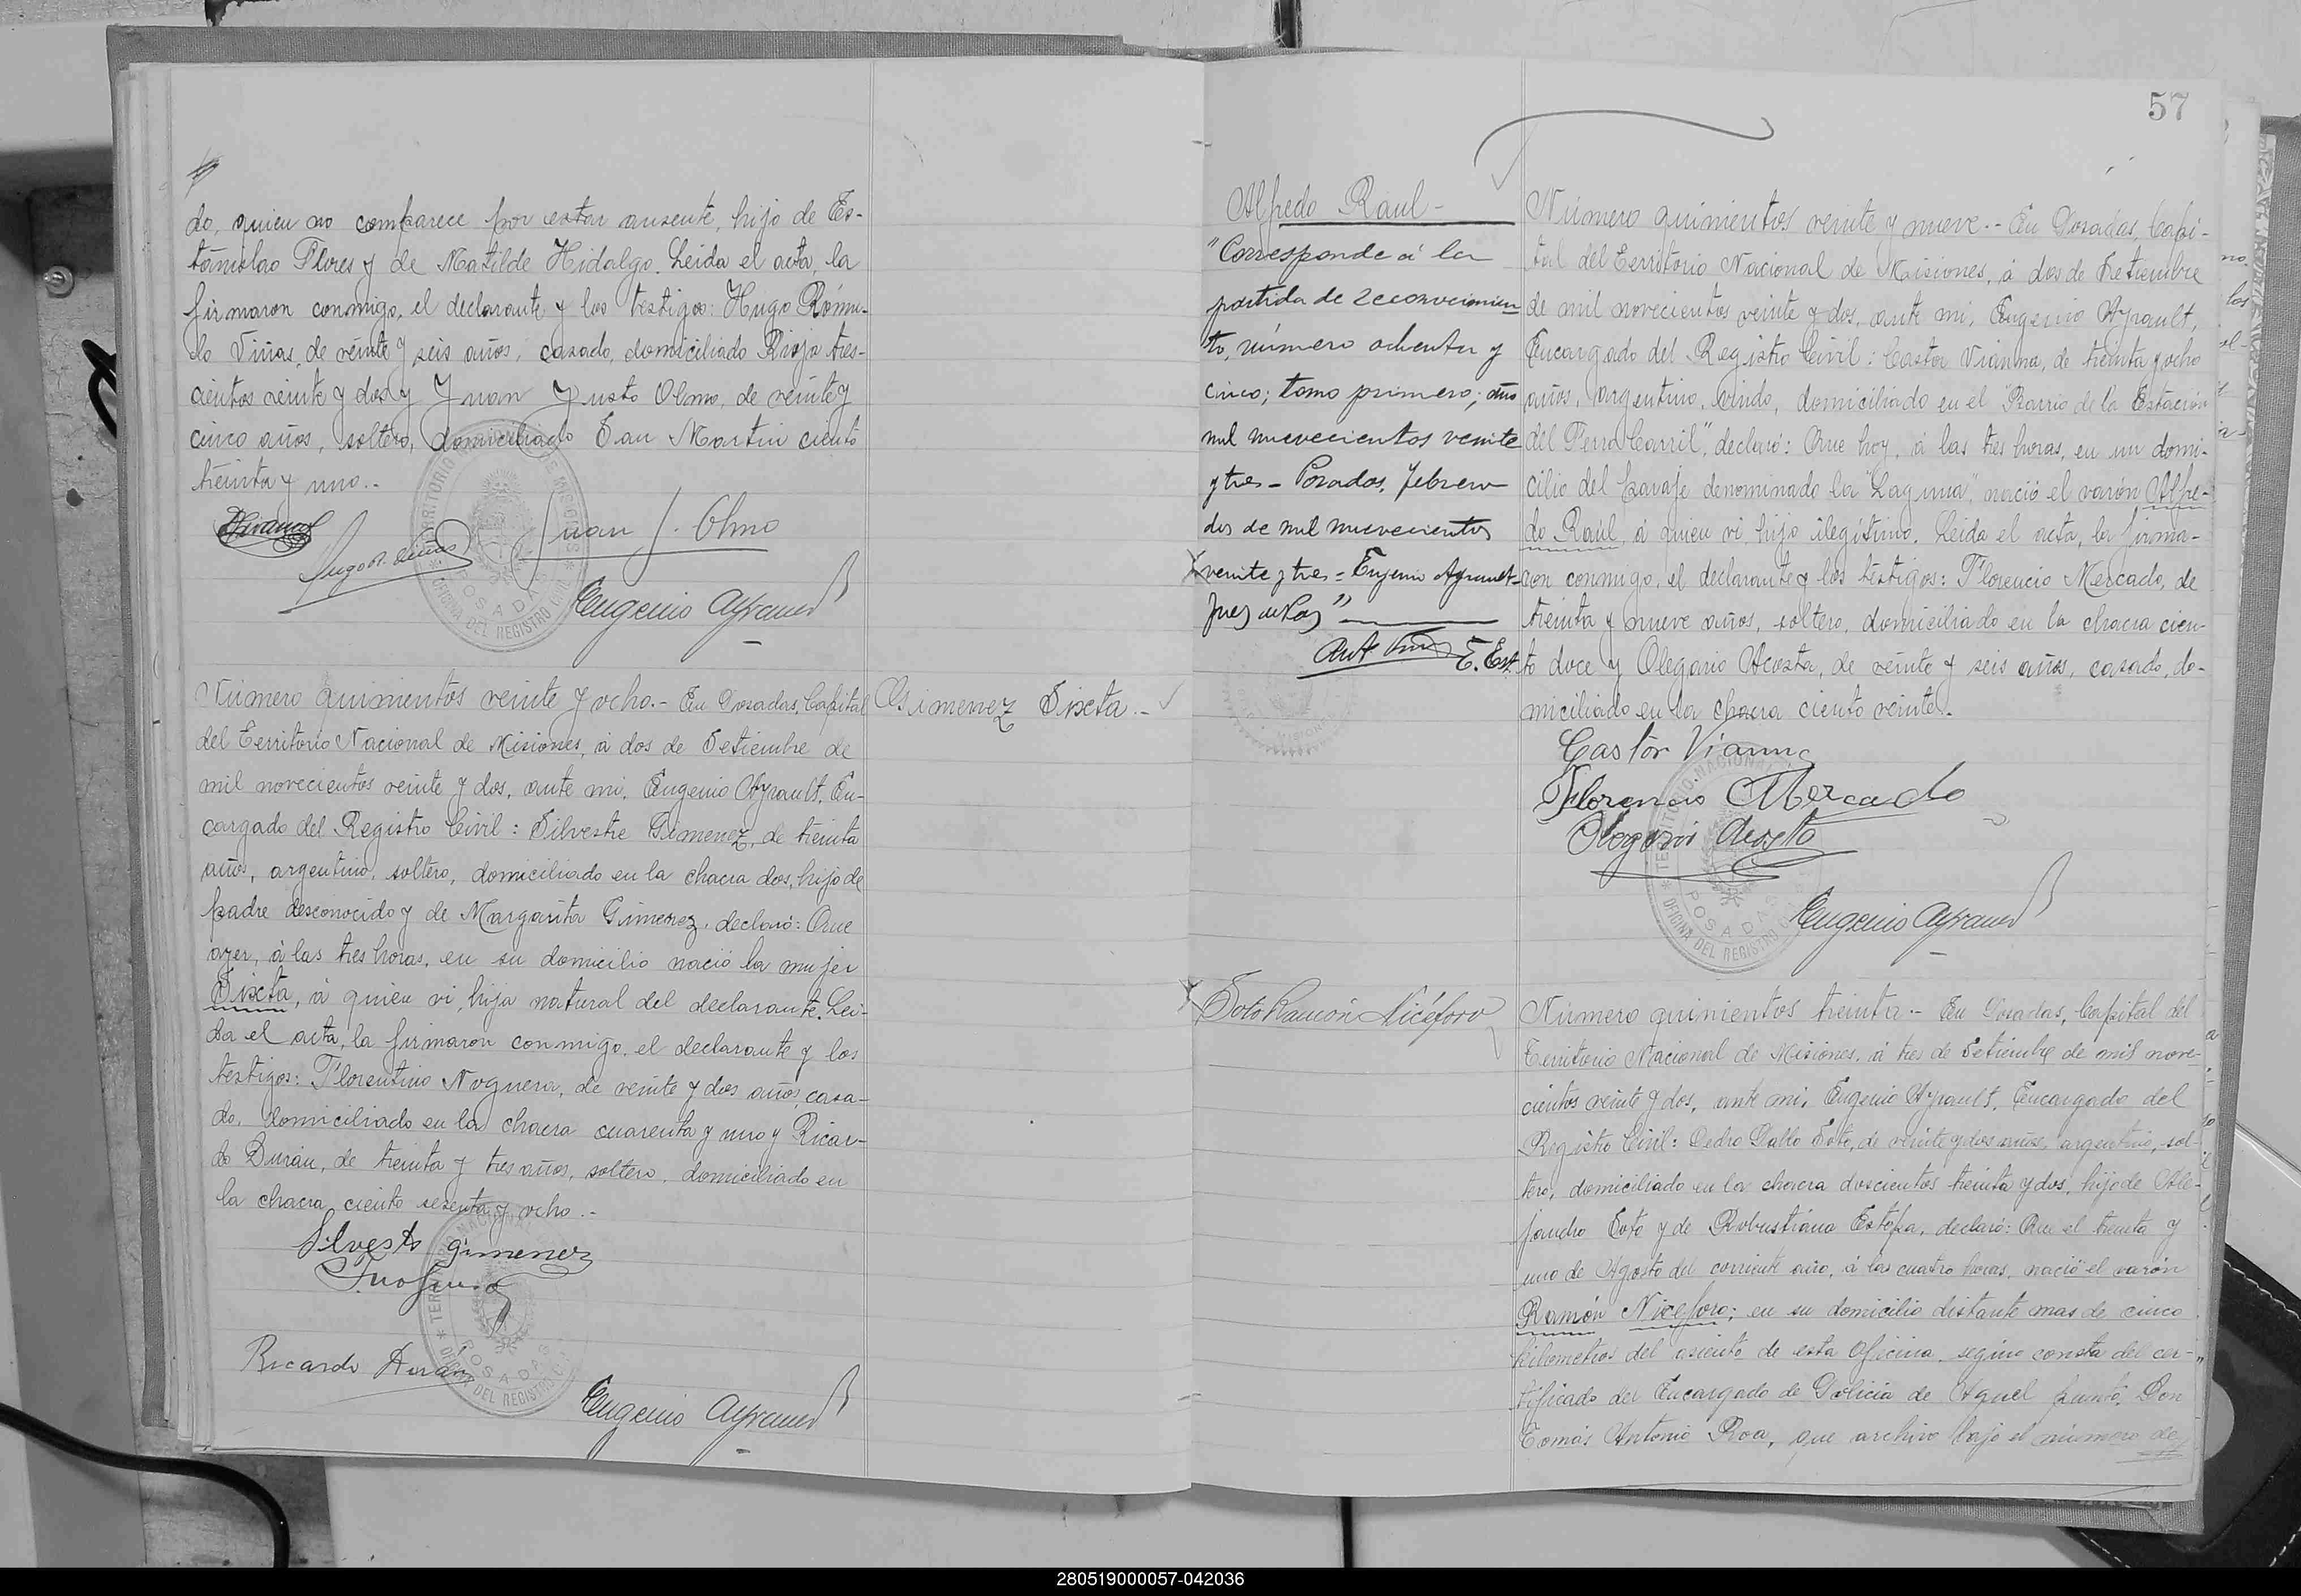 do, quien no comparece por estar ausente, hijo de Es-
tanislao Flores y de Matilde Hidalgo. Leida el acta, la
firmaron conmigo, el declarante y los testigos: Hugo Rómu-
lo Viñas, de veinte y seis años, casado, domiciliado Rioja tres-
cientos veinte y dos y Juan Justo Olmo, de veinte y
cinco años, soltero, domiciliado San Martin ciento
treinta y uno.-
Juan J. Olmo
Hugo R. Viñas
Eugenio Ayrault
Número quinientos veinte y ocho.- En Posadas, Capital
del Territorio Nacional de Misiones, á dos de Setiembre de
mil novecientos veinte y dos, ante mi, Eugenio Ayrault, En-
cargado del Registro Civil: Silvestre Gimenez, de treinta
años, argentino, soltero, domiciliado en la chacra dos, hijo de
padre desconocido y de Margarita Gimenez, declaró: Que
ayer, á las tres horas, en su domicilio nació la mujer
Sixta, á quien vi, hija natural del declarante. Lei-
da el acta, la firmaron conmigo, el declarante y los
testigos: Florentino Noguera, de veinte y dos años, casa-
do, domiciliado en la chacra cuarenta y uno y Ricar-
do Durán, de treinta y tres años, soltero, domiciliado en
la chacra ciento sesenta y ocho.-
Silvestre Gimenez
Ricardo Durán
Eugenio Ayrault
Gimenez Sixta.-
57
Alfredo Raul-
"Corresponde á la
partida de reconocimien-
to, número ochenta y
cinco; tomo primero; año
mil nuevecientos veinte
y tres - Posadas, febrero
dos de mil nuevecientos
veinte y tres = Eugenio Ayrault-
Juez de Paz"
Número quinientos veinte y nueve.- En Posadas, Capi-
tal del Territorio Nacional de Misiones, á dos de Setiembre
de mil novecientos veinte y dos, ante mi, Eugenio Ayrault,
Encargado del Registro Civil: Castor Vianna, de treinta y ocho
años, argentino, viudo, domiciliado en el "Barrio de la Estación
del Ferro Carril", declaró: Que hoy, á las tres horas, en un domi-
cilio del paraje denominado la "Laguna", nació el varón Alfre-
do Raúl, á quien vi, hijo ilegítimo. Leida el acta, la firma-
ron conmigo, el declarante y los testigos: Florencio Mercado, de
treinta y nueve años, soltero, domiciliado en la chacra cien-
to doce y Olegario Acosta, de veinte y seis años, casado, do-
miciliado en la chacra ciento veinte.-
Castór Vianna
Florencio Mercado
Olegario Acosta
Eugenio Ayrault
Soto Ramón Nicéforo
Número quinientos treinta.- En Posadas, Capital del
Territorio Nacional de Misiones, á tres de Setiembre de mil nove-
cientos veinte y dos, ante mi, Eugenio Ayrault, Encargado del
Registro Civil: Pedro Pablo Soto, de veinte y dos años, argentino, sol-
tero, domiciliado en la chacra doscientos treinta y dos, hijo de Ale-
jandro Soto y de Robustiana Estepa, declaró: Que el treinta y
uno de Agosto del corriente año, á las cuatro horas, nació el varón
Ramón Niceforo; en su domicilio distante mas de cinco
kilometros del asiento de esta Oficina, segun consta del cer-
tificado del Encargado de Policia de Aquel punto, Don
Tomás Antonio Roa, que archivo bajo el número de
TERRITORIO NACIONAL DE MISIONES
POSADAS
OFICINA DEL REGISTRO CIVIL
280519000057-042036